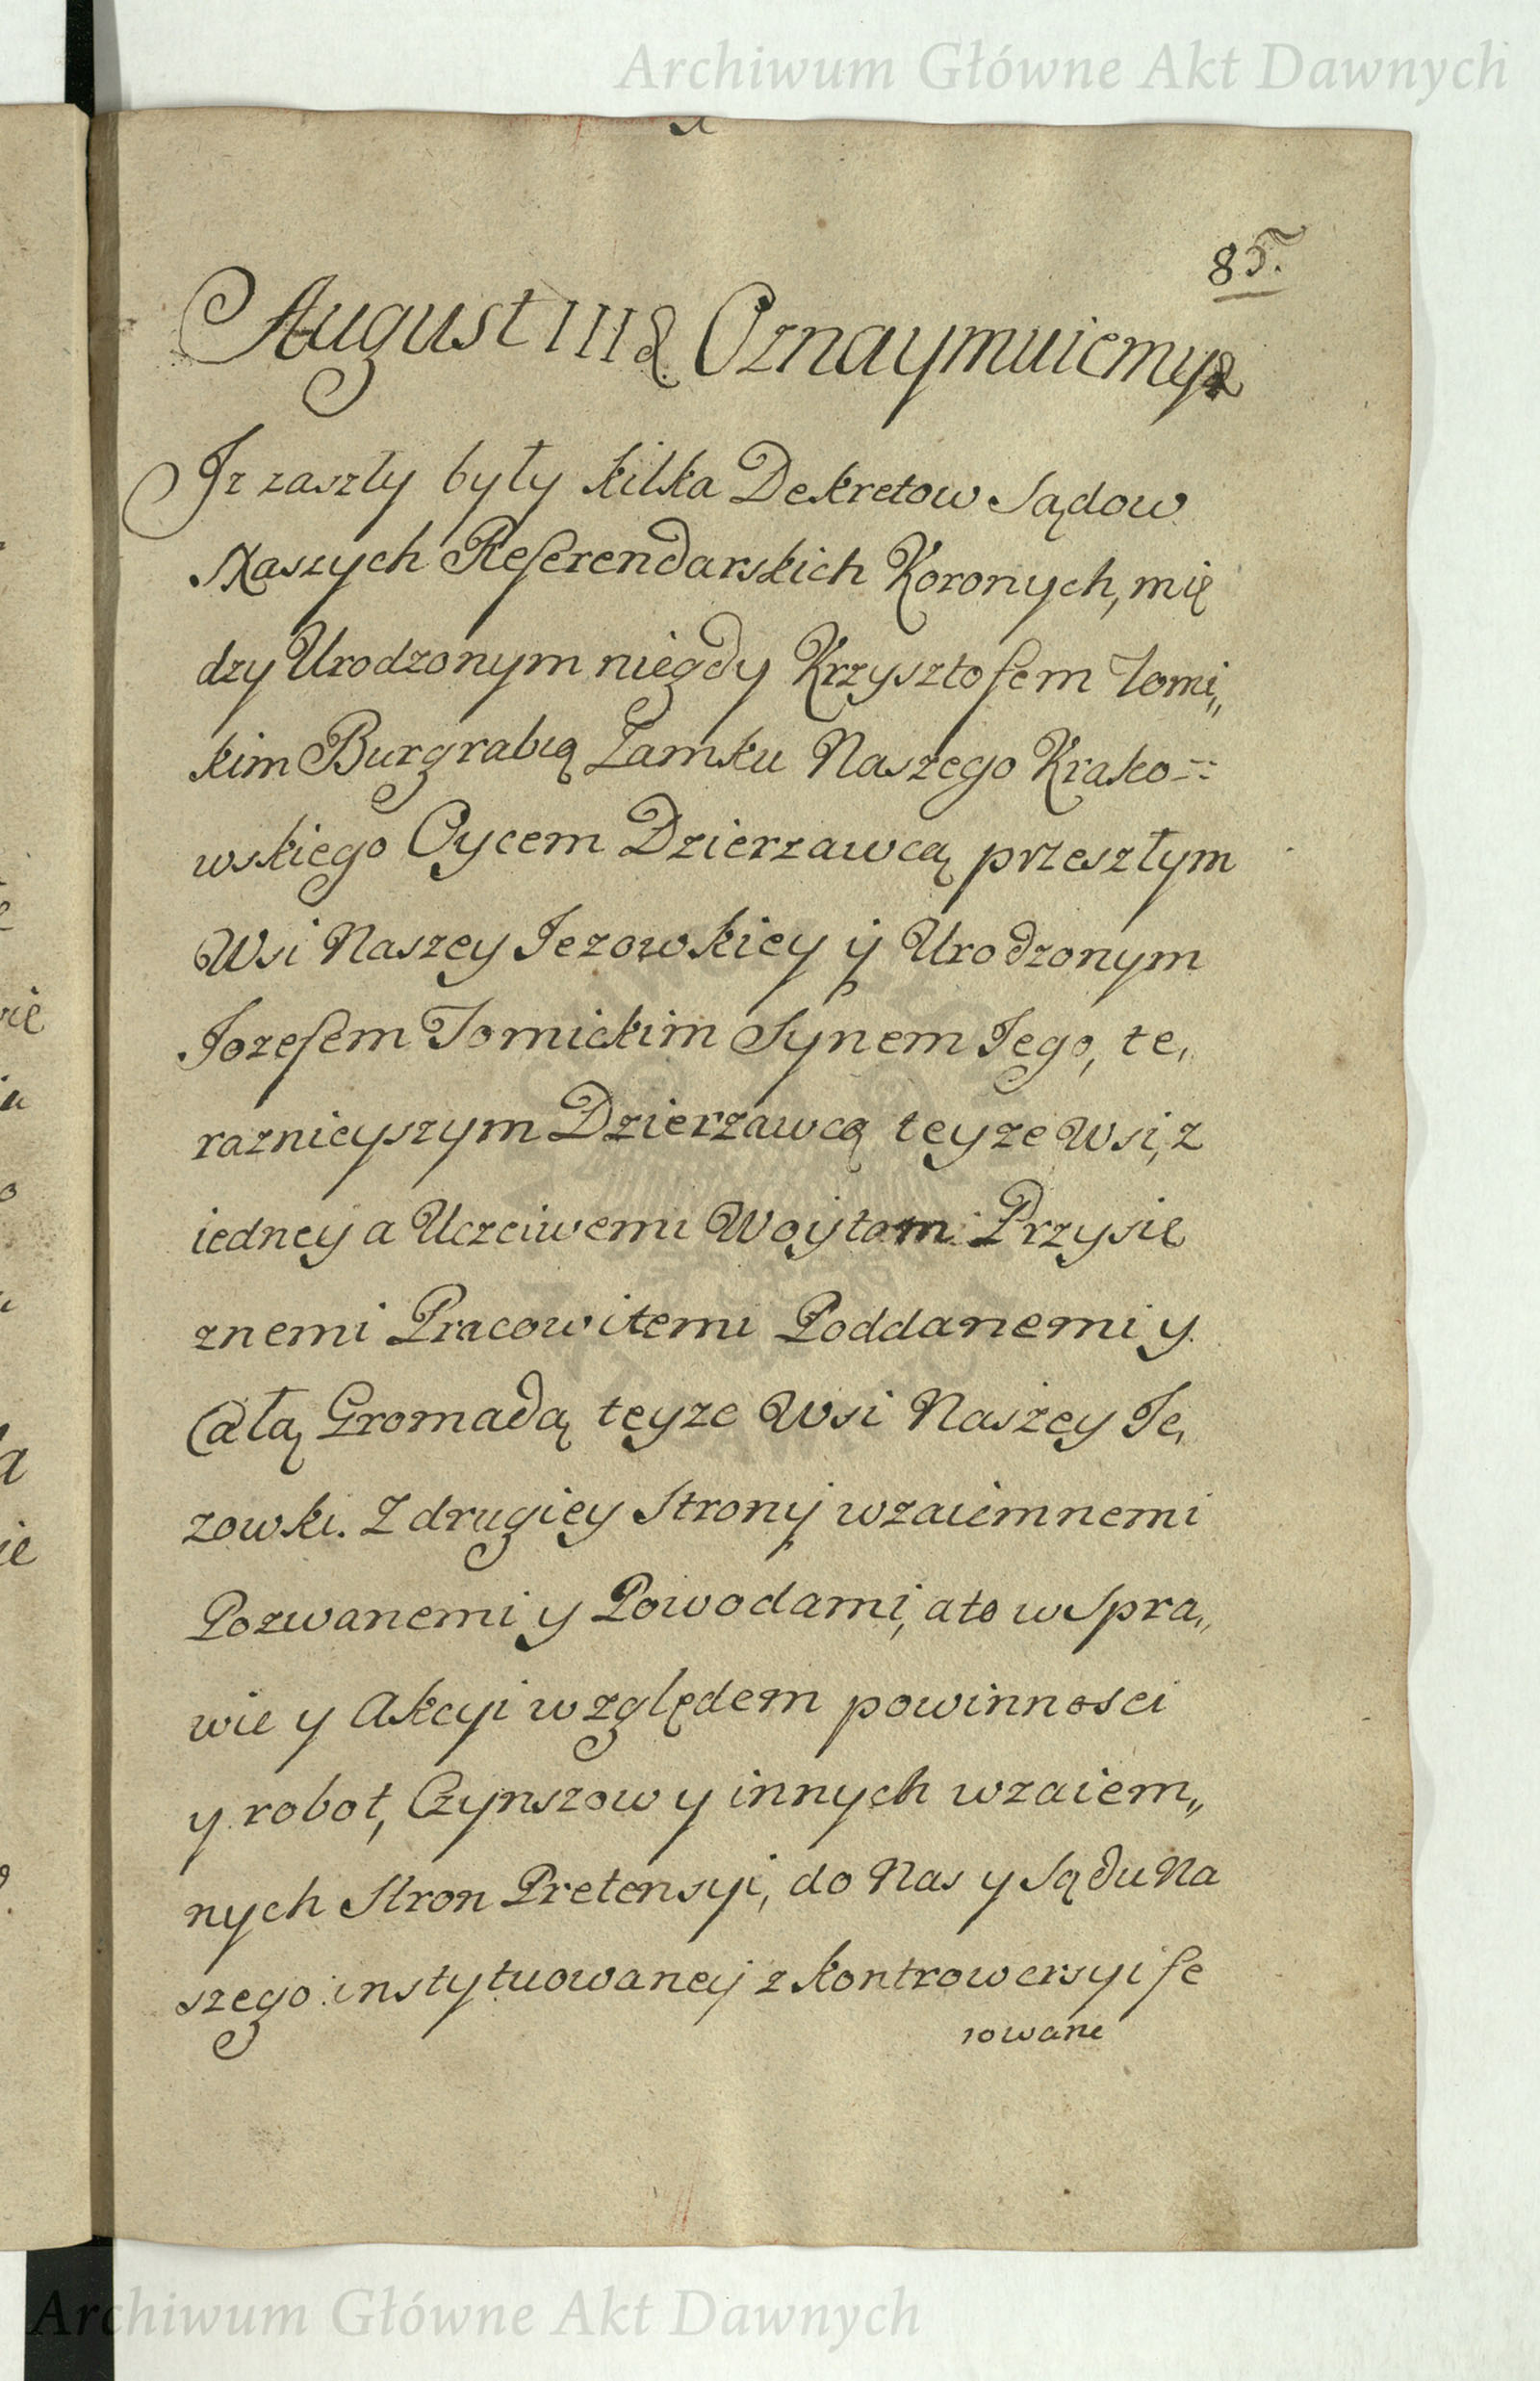 Archiwum Główne Akt Dawnych
85.
August III & Oznaymuiemy &
Iz zaszły były kilka Dekretow Sądow
Naszych Referendarskich Koronych, mię
dzy Urodzonym niegdy Krzysztofem Tomi„
kim Burgrabią Zamku Naszego Krako=
wskiego Oycem Dzierzawcą przeszłym
Wsi Naszey Iezowskiey ÿ Urodzonym
Iozefem Tomickim Synem Iego, te„
raznieyszym Dzierzawcą teyze Wsi, z
iedney a Uczciwemi Woytom Przysię
znemi Pracowitemi Poddanemi y
Całą Gromadą teyze Wsi Naszey Ie„
zowki. Z drugiey Strony wzaiemnemi
Pozwanemi y Powodami, ato w Spra„
wie y Akcyi względem powinnosci
y robot, Czynszow y innych wzaiem„
nych Stron Pretensyi, do Nas y Sądu Na
szego instytuowaney z kontrowersyi fe
rowane
Archiwum Główne Akt Dawnych